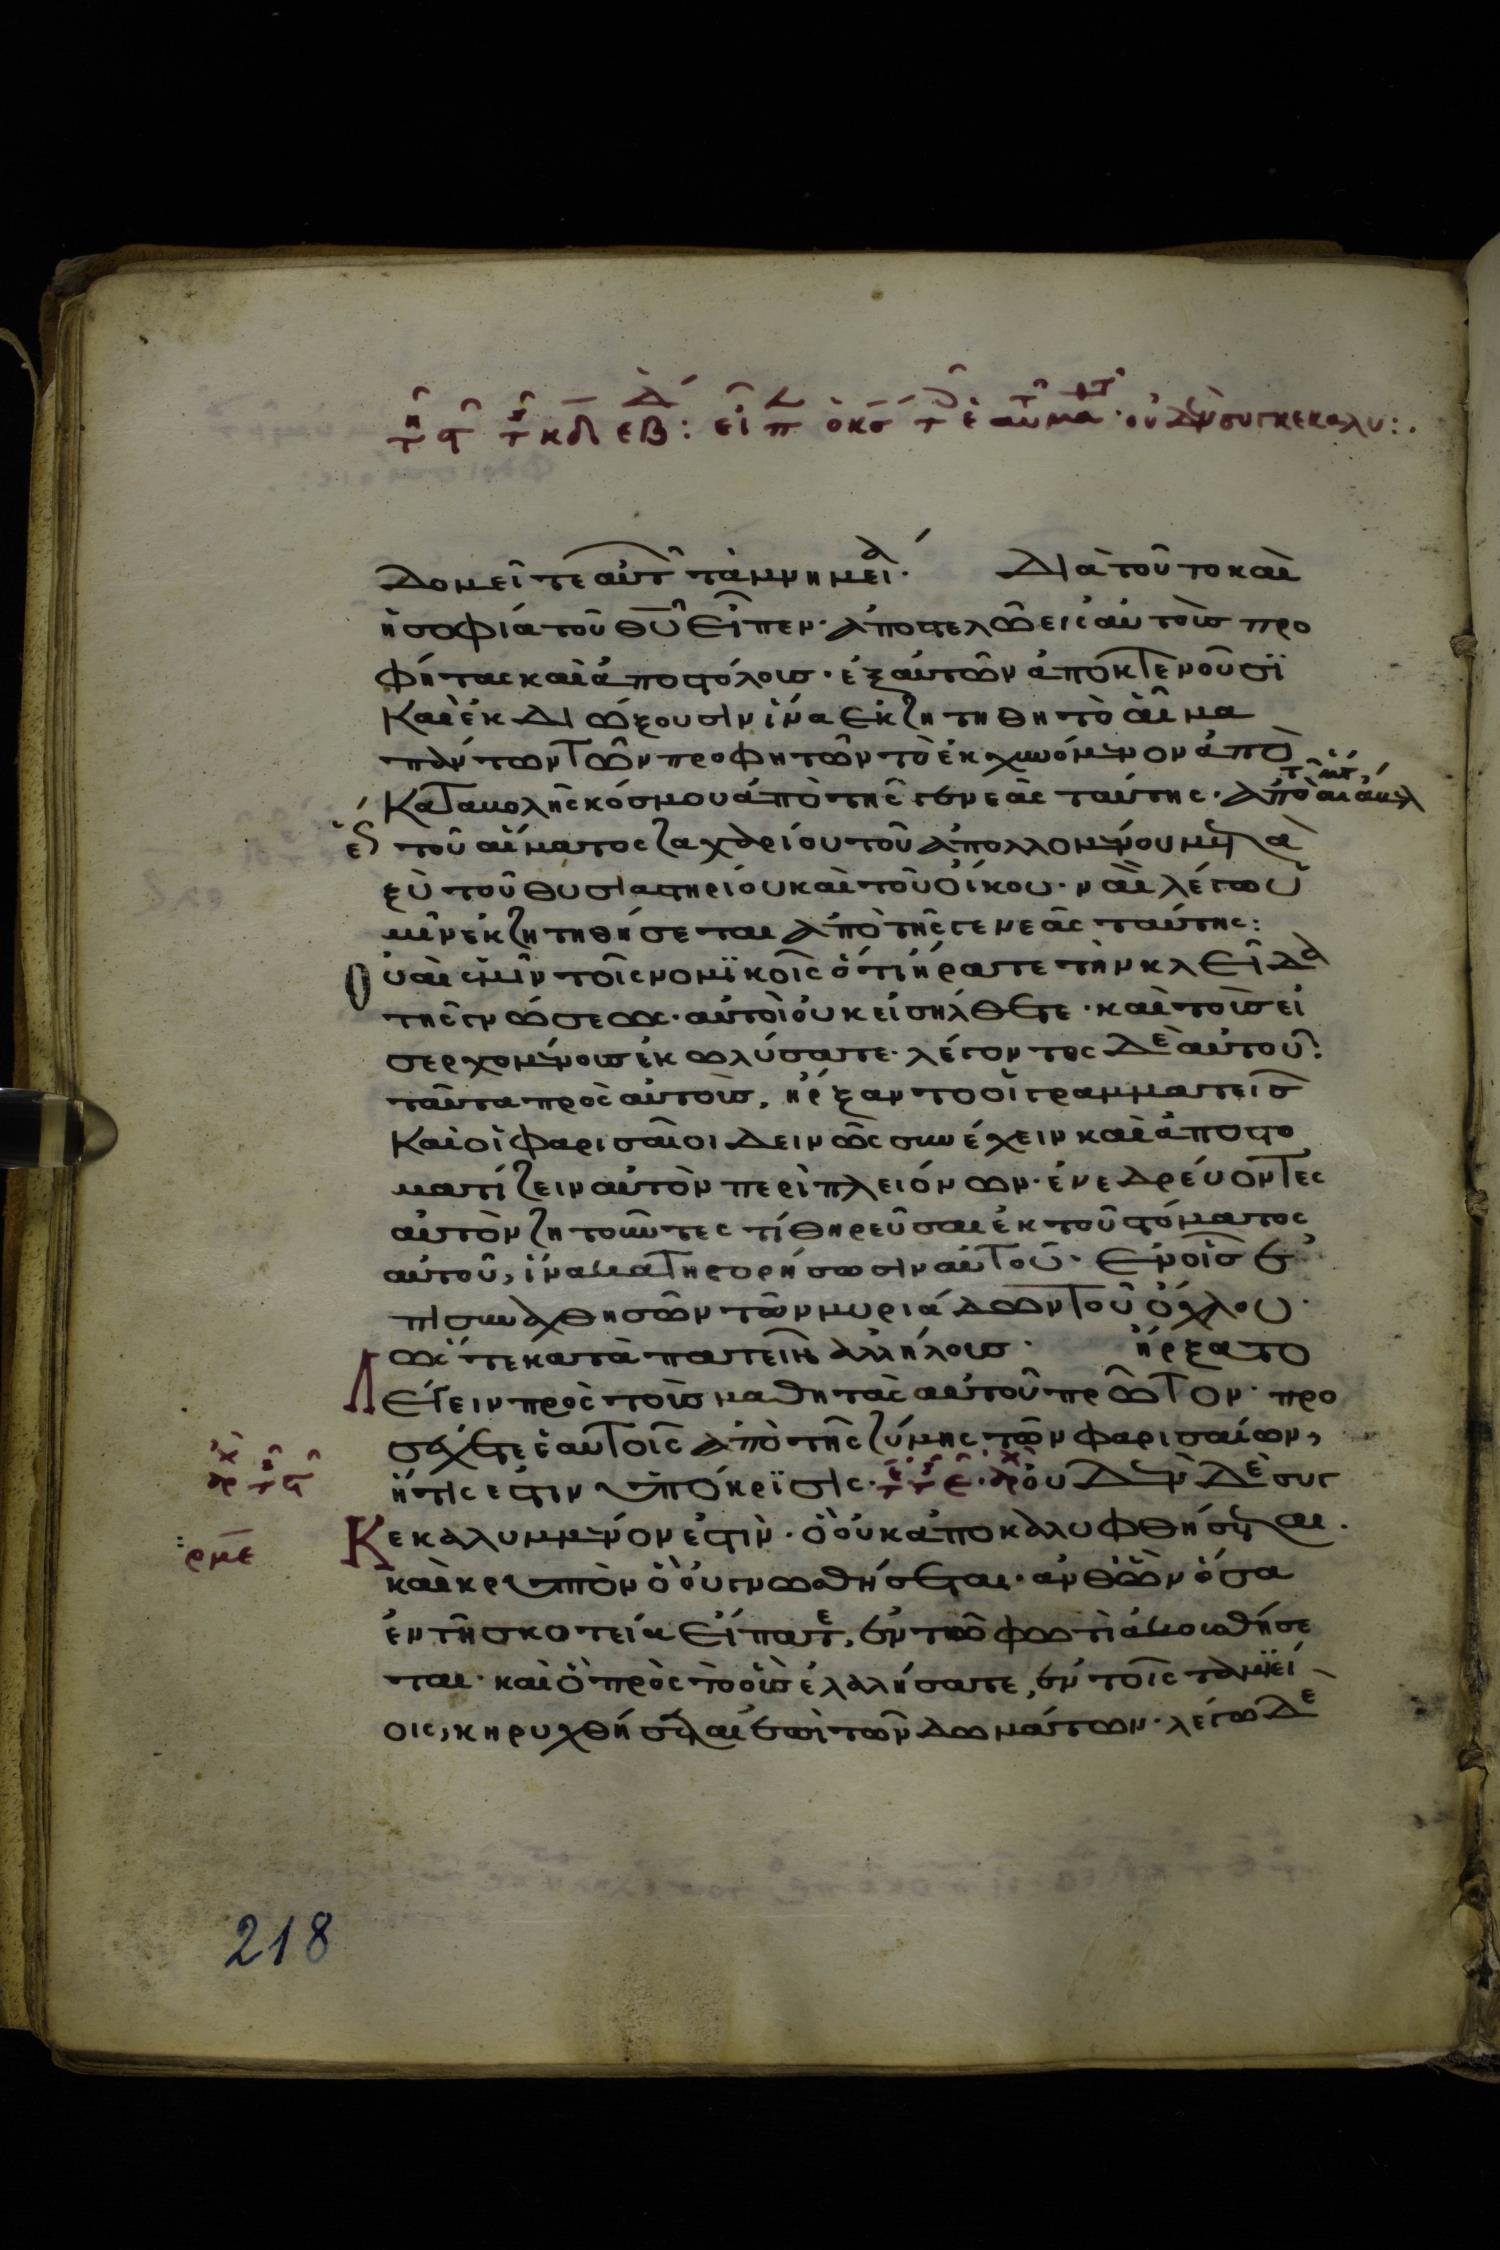 δομεῖτε αὐτ τὰ μνημεῖα. Διὰ τοῦτο καὶ
ἡ σοφία τοῦ θυ εἶπεν· ἀποστελῶ εἰς αὐτοὺς προ
φήτας καὶ ἀποστόλους· ἐξ αὐτῶν ἀποκτενοῦσϊ
Καὶ ἐκδιώξουσιν ἵνα ἐκζητηθῆ τὸ αἷμα
πάντων τῶν προφητῶν τὸ ἐκχυνόμενον ἀπὸ
Καταβολῆς κόσμου ἀπὸ τῆς γενεᾶς ταύτης· ἀπὸ τοῦ αἵματ ἄβελ
ἕως τοῦ αἵματος ζαχαρίου τοῦ ἀπολλομένου μετα
ξὺ τοῦ θυσιαστηρίου καὶ τοῦ οἴκου· ναὶ λέγω ὑ
μῖν ἐκζητηθήσεται ἀπὸ τῆς γενεᾶς ταύτης:
Οὐαὶ ὑμῖν τοῖς νομϊκοῖς ὅτι ἤρατε τὴν κλεῖδα
τῆς γνώσεως· αὐτοὶ οὐκ εἰσήλθετε· καὶ τοὺς εἰ
σερχομένους ἐκωλύσατε· λέγοντος δὲ αὐτοῦ
ταῦτα πρὸς αὐτοὺς, ἤρξαντο οἱ γραμματεῖς
Καὶ οἱ φαρισαῖοι δεινῶς συνέχειν καὶ ἀποστο
ματίζειν αὐτὸν περὶ πλειόνων· ἐνεδρεύοντες
αὐτὸν ζητοῦντες τί θηρεῦσαι ἐκ τοῦ στόματος
αὐτοῦ, ἵνα κατηγορήσωσιν αὐτοῦ· Ἐν οἷς ἐ
πισυναχθησῶν τῶν μυριάδων τοῦ ὄχλου·
ὥστε καταπατεῖν ἀλλήλους· ἤρξατο
Λέγειν πρὸς τοὺς μαθητὰς αὐτοῦ πρῶτον· προ
σέχετε ἑαυτοῖς ἀπὸ τῆς ζύμης τῶν φαρισαίων,
ἥτις ἐστιν ὑπόκρϊσις· οὐδὲν δὲ συγ
Κεκαλυμμένον ἐστὶν· ὃ οὐκ ἀποκαλυφθήσεται.
καὶ κρυπτὸν ὃ οὐ γνωσθήσεται· ἀνθ ὧν ὅσα
ἐν τῆ σκοτεία εἴπατε, ἐν τῶ φωτὶ ἀκουσθήσε
ται· καὶ ὃ πρὸς τὸ οὖς ἐλαλήσατε, ἐν τοῖς ταμϊεί
οις, κηρυχθήσεται ἐπὶ τῶν δωμάτων· λέγω δὲ
ρμε
218